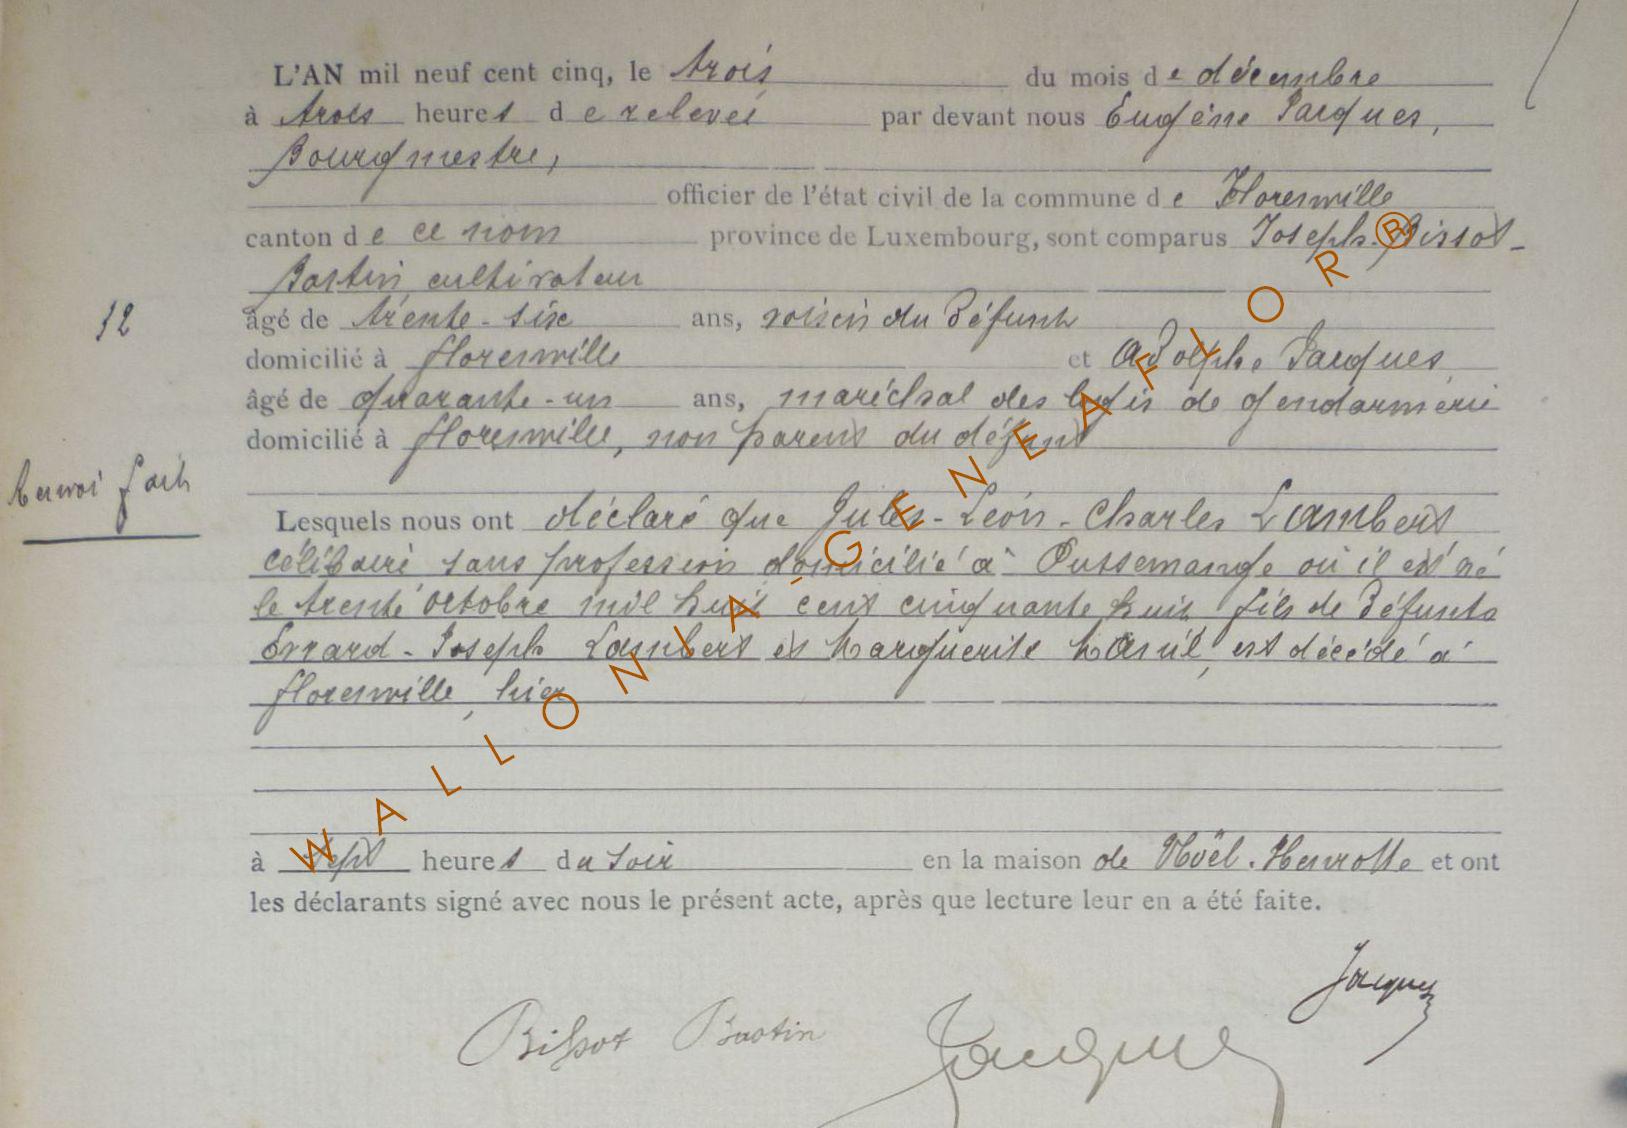 L'AN mil neuf cent cinq, le trois du mois de décembre
à trois heures de relevée par devant nous Eugène Jacques,
Bourgmestre,
officier de l'état civil de la commune de Florenville
canton de ce nom province de Luxembourg, sont comparus Joseph Bissot-
Bastin cultivateur
12
âgé de trente-six ans, voisin du défunt
domicilié à florenville et Adolphe Jacques,
âgé de quarante-un ans, maréchal des logis de gendarmerie
domicilié à florenville, non parent du défunt
Renvoi fait
Lesquels nous ont déclaré que Jules-Léon-Charles Lambert
célibaire sans profession domicilié à Pussemange où il est né
le trente octobre mil huit cent cinquante huit fils de défunts
Evrard-Joseph Lambert et Marguerite Hanil, est décédé à
florenville, hier
à sept heures du soir en la maison de Noël-Henrotte et ont
les déclarants signé avec nous le présent acte, après que lecture leur en a été faite.
Jacques
Bissot Bastin Jacques
WALLONIA-GENEAFLOR®